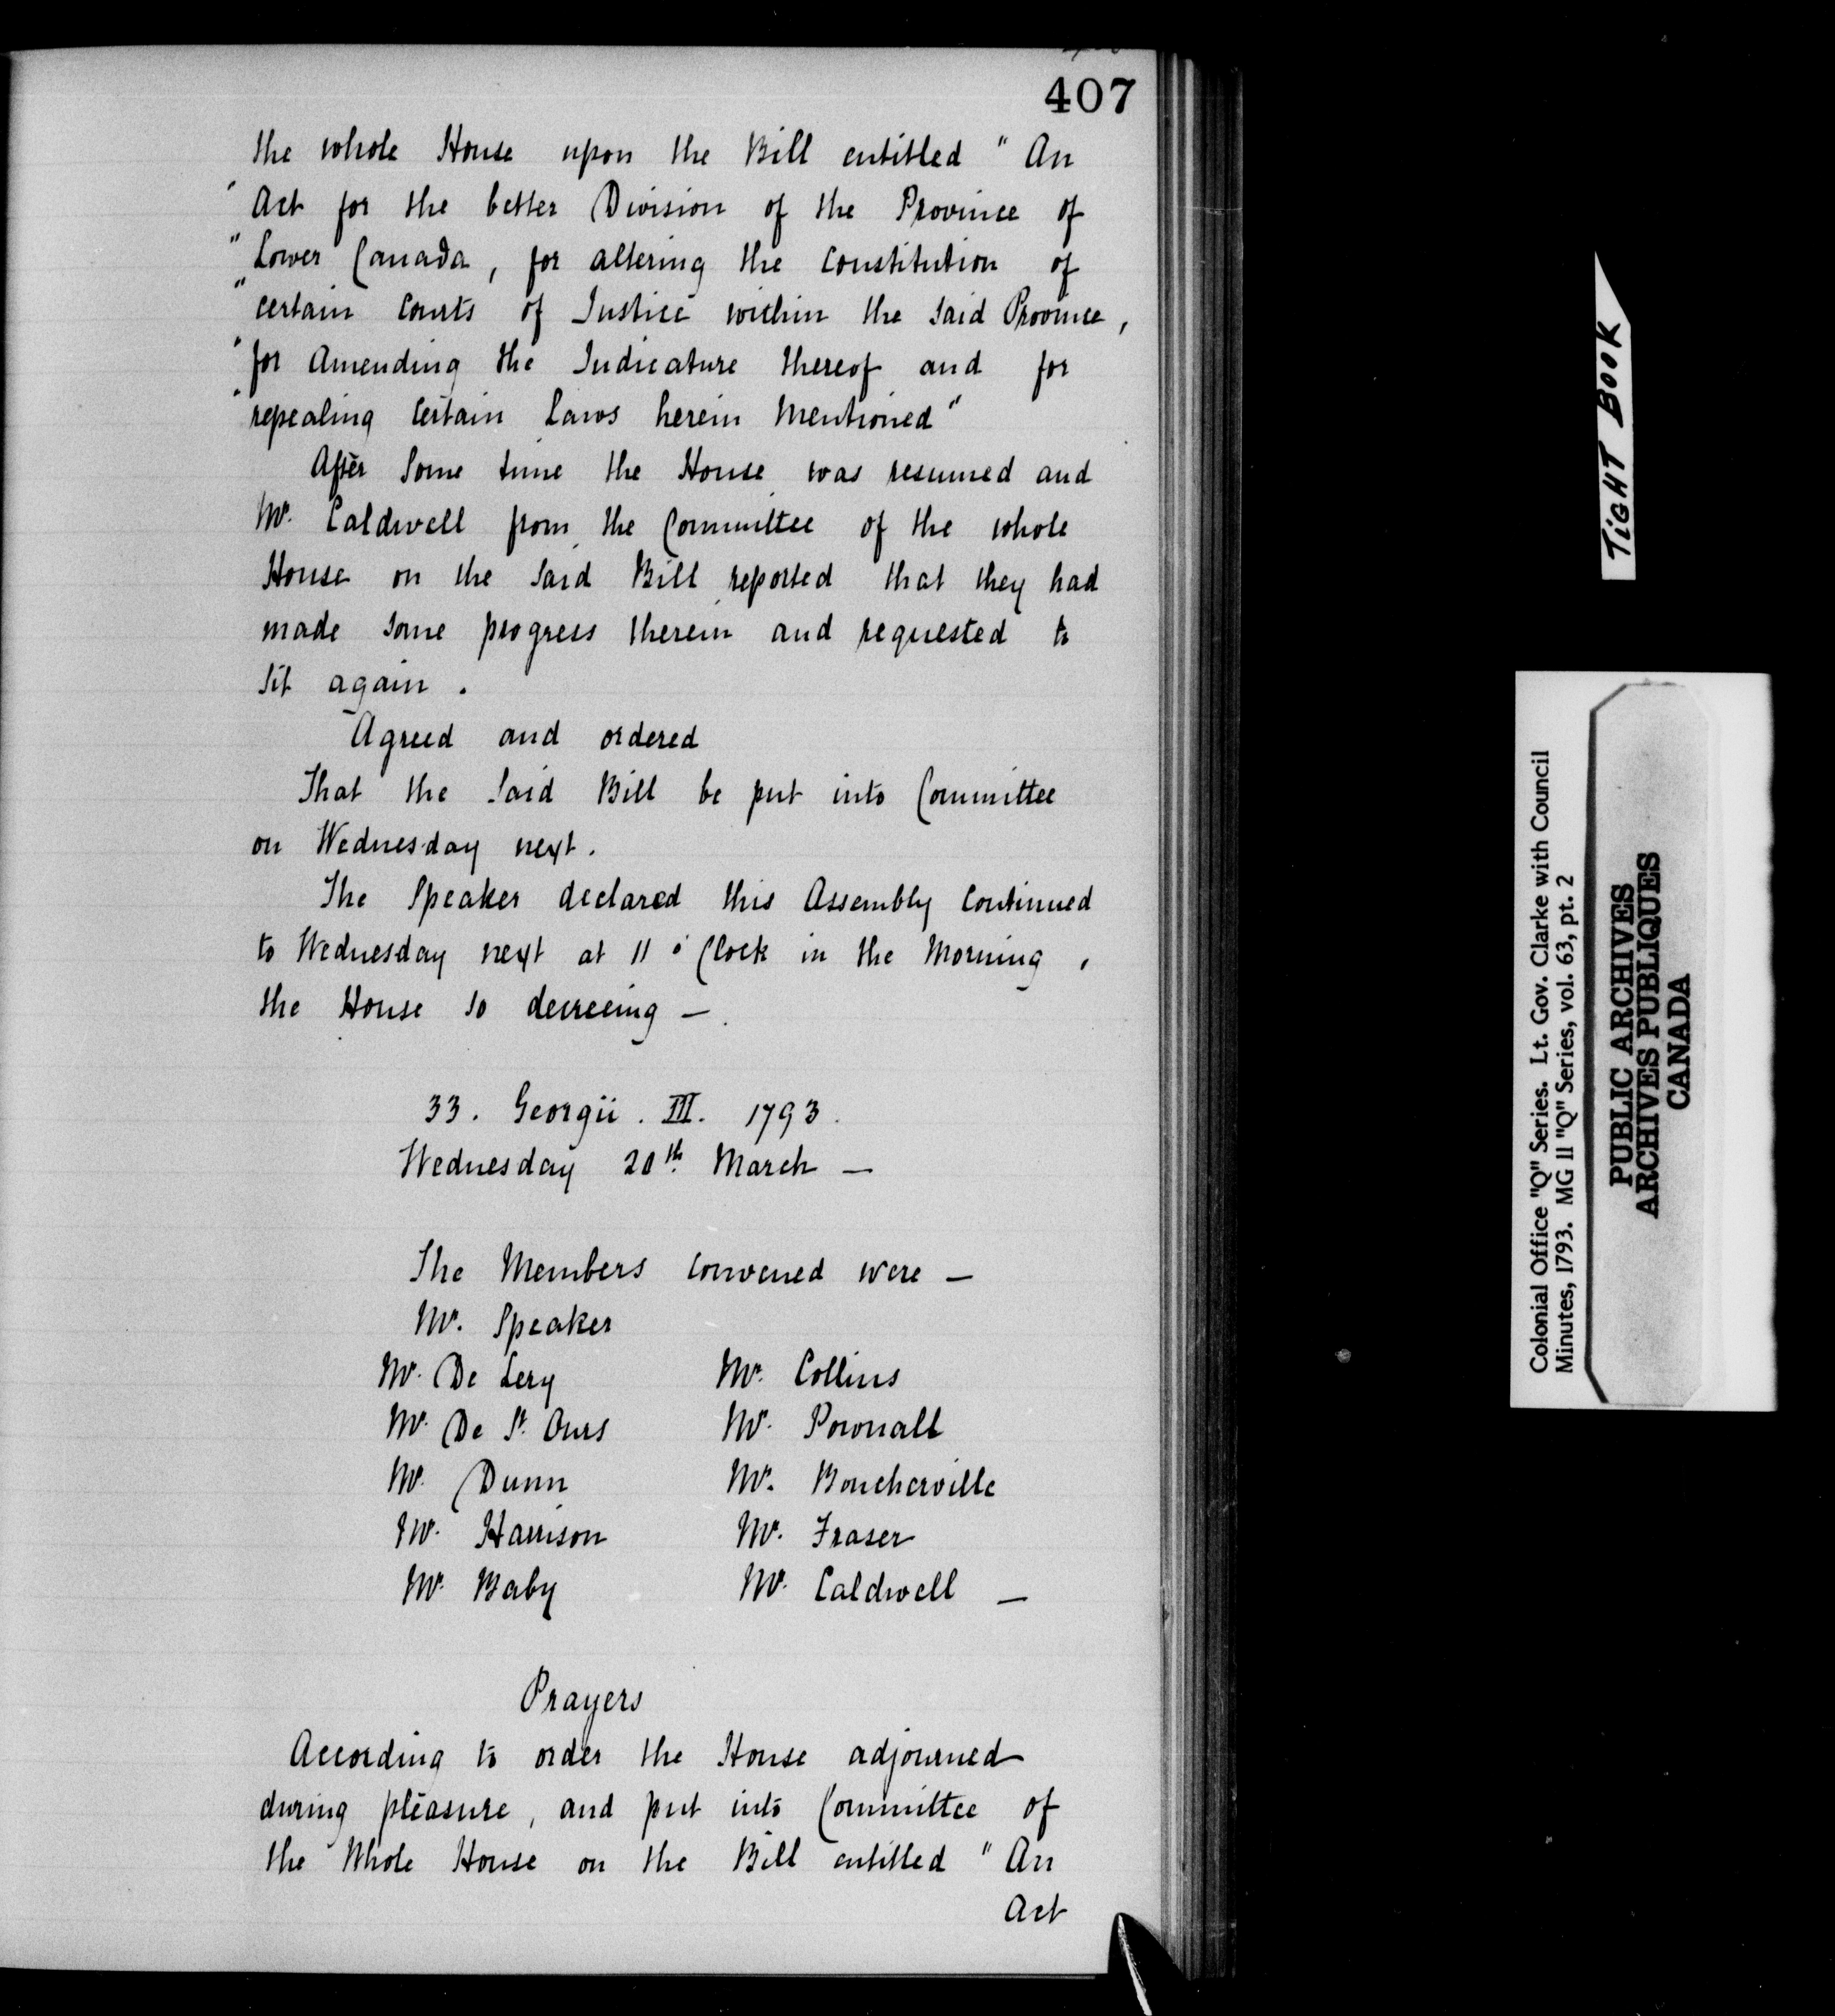 407
the whole House upon the Bill entitled " An
" Act for the better Division of the Province of
" Lower Canada, for altering the Constitution of
" certain Courts of Justice within the said Province,
" for Amending the Judicature thereof and for
" repealing certain Laws herein Mentioned"
After some time the House was resumed and
Mr. Caldwell from the Committee of the whole
House on the said Bill reported that they had
made some progress therein and requested to
sit again.
Agreed and ordered
That the said Bill be put into Committee
on Wednesday next.
The Speaker declared this Assembly Continued
to Wednesday next at 11 o'Clock in the Morning,
the House so decreeing —
33. Georgii. III. 1793.
Wednesday 20th March —
The Members convened were —
Mr. Speaker
Mr. De Lery Mr. Collins
Mr. De St. Ours Mr. Pownall
Mr. Dunn Mr. Boucherville
Mr. Harrison Mr. Fraser
Mr. Baby Mr. Caldwell —
Prayers
According to order the House adjourned
during pleasure, and put into Committee of
the Whole House on the Bill entitled " An
Act
TIGHT BOOK
Colonial Office "Q" Series. Lt. Gov. Clarke with Council
Minutes, 1793. MG 11 "Q" Series, vol. 63, pt. 2
PUBLIC ARCHIVES
ARCHIVES PUBLIQUES
CANADA